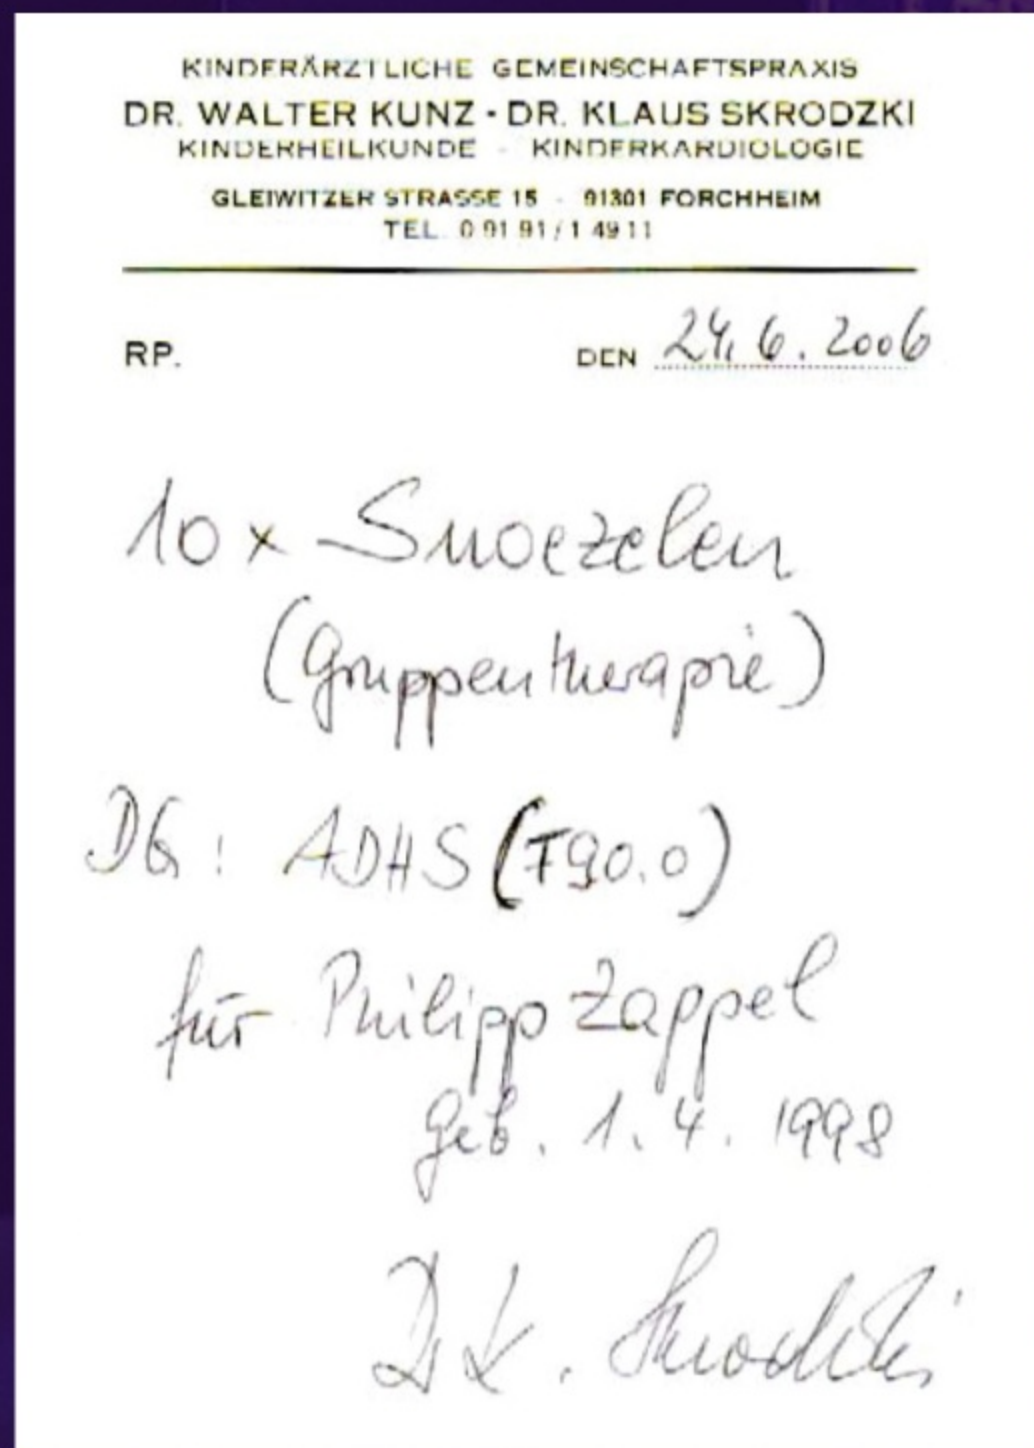 KINDERÄRZTLICHE GEMEINSCHAFTSPRAXIS
DR. WALTER KUNZ - DR. KLAUS SKRODZKI
KINDERHEILKUNDE - KINDERKARDIOLOGIE
GLEIWITZER STRASSE 15 - 91301 FORCHHEIM
TEL. 0 91 91 / 1 49 11
RP.
DEN 24.6.2006
10 x Snoezelen
(Gruppentherapie)
DG: ADHS (F90.0)
für Philipp Zappel
geb. 1.4.1998
Dr K. Skrodzki